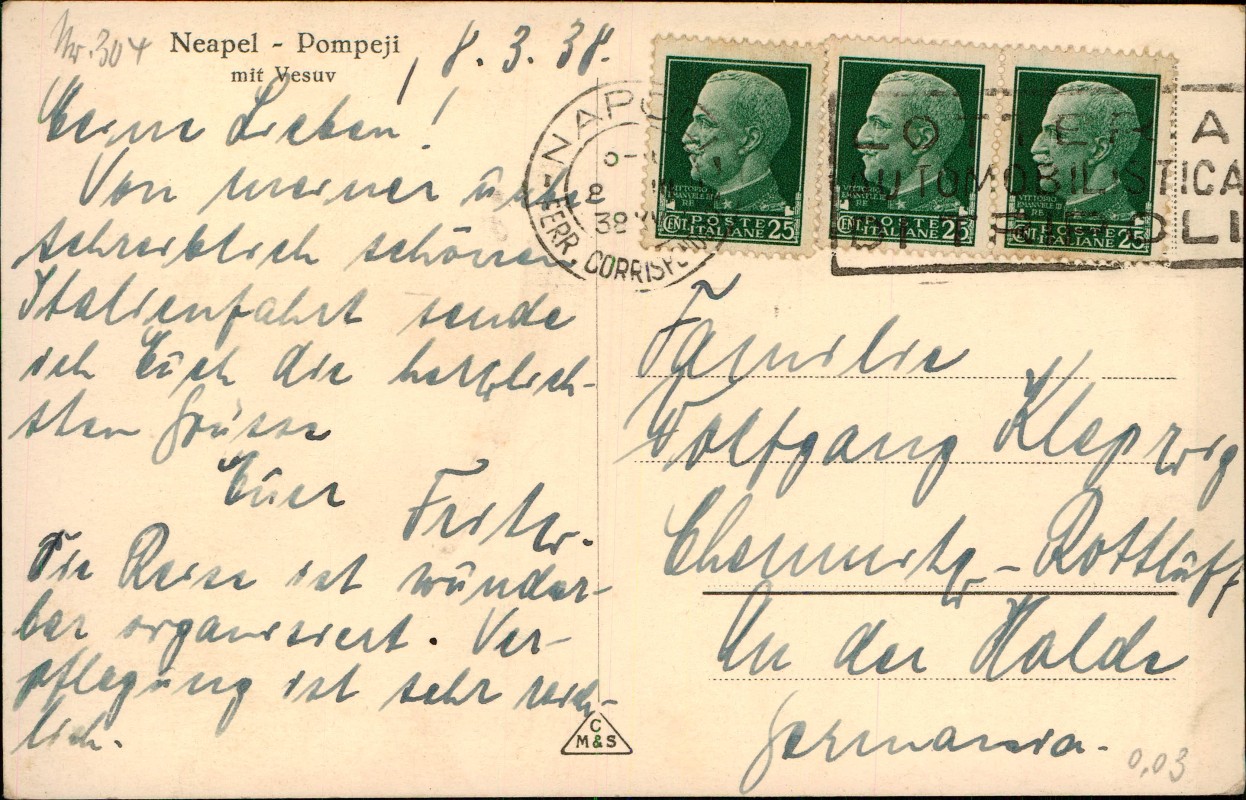 Nr. 304
Neapel - Pompeji
mit Vesuv
8.3.38.
Meine Lieben!
Von meiner unbe-
schreiblich schönen
Italienfahrt sende
ich Euch die herzlich-
sten Grüsse
Euer
Fritz.
Die Reise ist wunder-
bar organisiert. Ver-
pflegung ist sehr reich-
lich.
C
M&S
NAPOLI
8
38
FERR. CORRISP
VITTORIO
EMANUELE III
RE
CENT. POSTE
ITALIANE 25
VITTORIO
EMANUELE III
RE
CENT. POSTE
ITALIANE 25
VITTORIO
EMANUELE III
RE
CENT. POSTE
ITALIANE 25
LOTTERIA
AUTOMOBILISTICA
DI TRIPOLI
Familie
Wolfgang
Chemnitz - Rottluff
An der Halde
Germania.
0,03